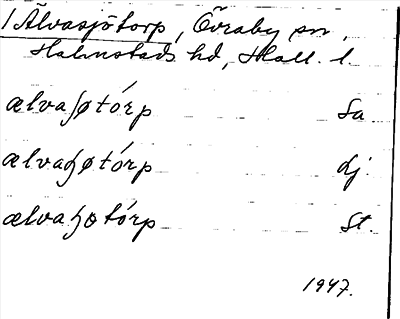 1 Älvasjötorp, Övraby sn,
Halmstads hd, Hall. l.
ælvaʃøtórp Sa
ælvaꜧøtórp dj.
ælvaꜧotórp St.
1947.